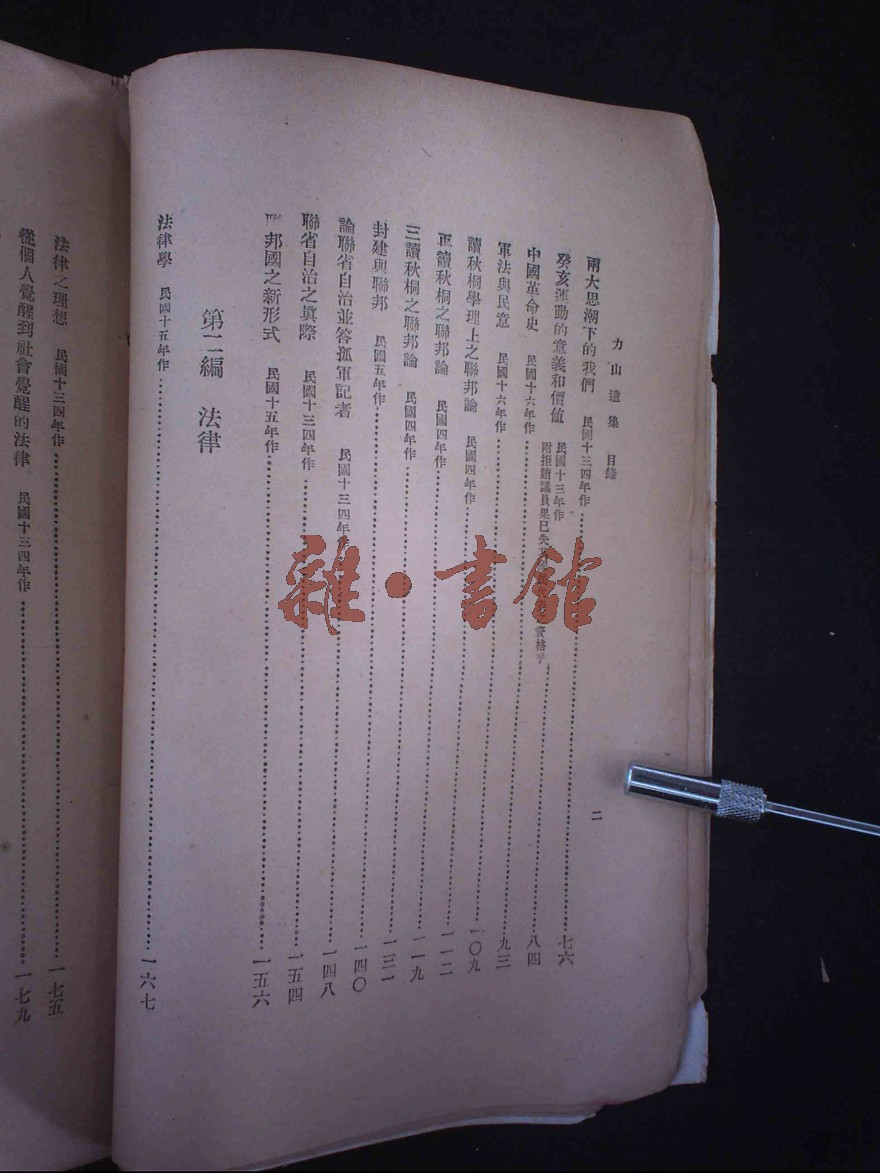 力山遺集 目錄
二
兩大思潮下的我們 民國十三四年作 七六
癸亥運動的意義和價值 民國十三年作
附拒賄議員果已失 資格乎 八四
中國革命史 民國十六年作 九三
軍法與民意 民國十六年作 一〇九
讀秋桐學理上之聯邦論 民國四年作 一一二
再讀秋桐之聯邦論 民國四年作 一一九
三讀秋桐之聯邦論 民國四年作 一三一
封建與聯邦 民國五年作 一四〇
論聯省自治並答孤軍記者 民國十三四年作 一四八
聯省自治之眞際 民國十三四年作 一五四
邦國之新形式 民國十五年作 一五六
第二編 法律
法律學 民國十五年作 一六七
法律之理想 民國十三四年作 一七五
從個人覺醒到社會覺醒的法律 民國十三四年作 一七九
雜·書館